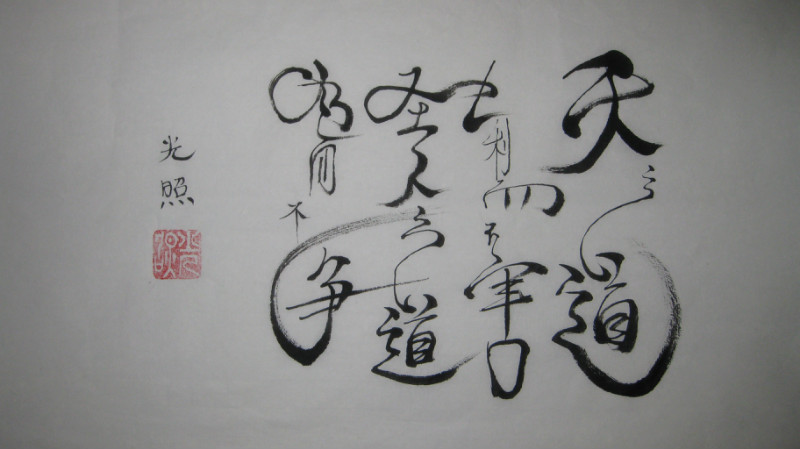 天之道
利而不害
圣人之道
为而不争
光照